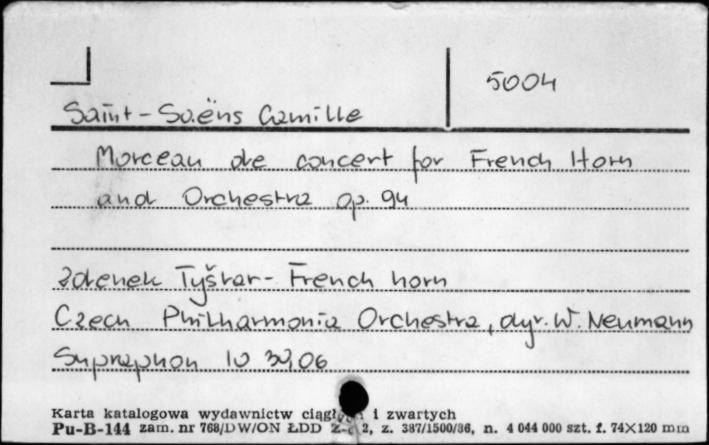 5004
Saint-Saëns Camille
Morceau de concert for French Horn
and Orchestra op. 94
Zdenek Tyšvar - French horn
Czech Philharmonia Orchestra, dyr. W. Neumann
Supraphon 10
Karta katalogowa wydawnictw ciągłych i zwartych
Pu-B-144 zam. nr 768/DW/ON ŁDD 2, z. 387/1500/86, n. 4 044 000 szt. f. 74×120 mm